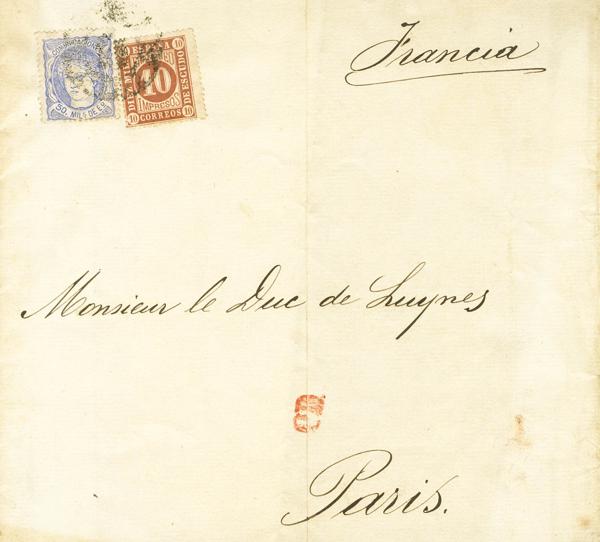 Francia
COMUNICACIONES
50. MILS DE E.
ESPAÑA
DIEZ MILS
10
IMPRESOS
DE ESCUDO
CORREOS
10 10 10
Monsieur le Duc de Luynes
Paris.